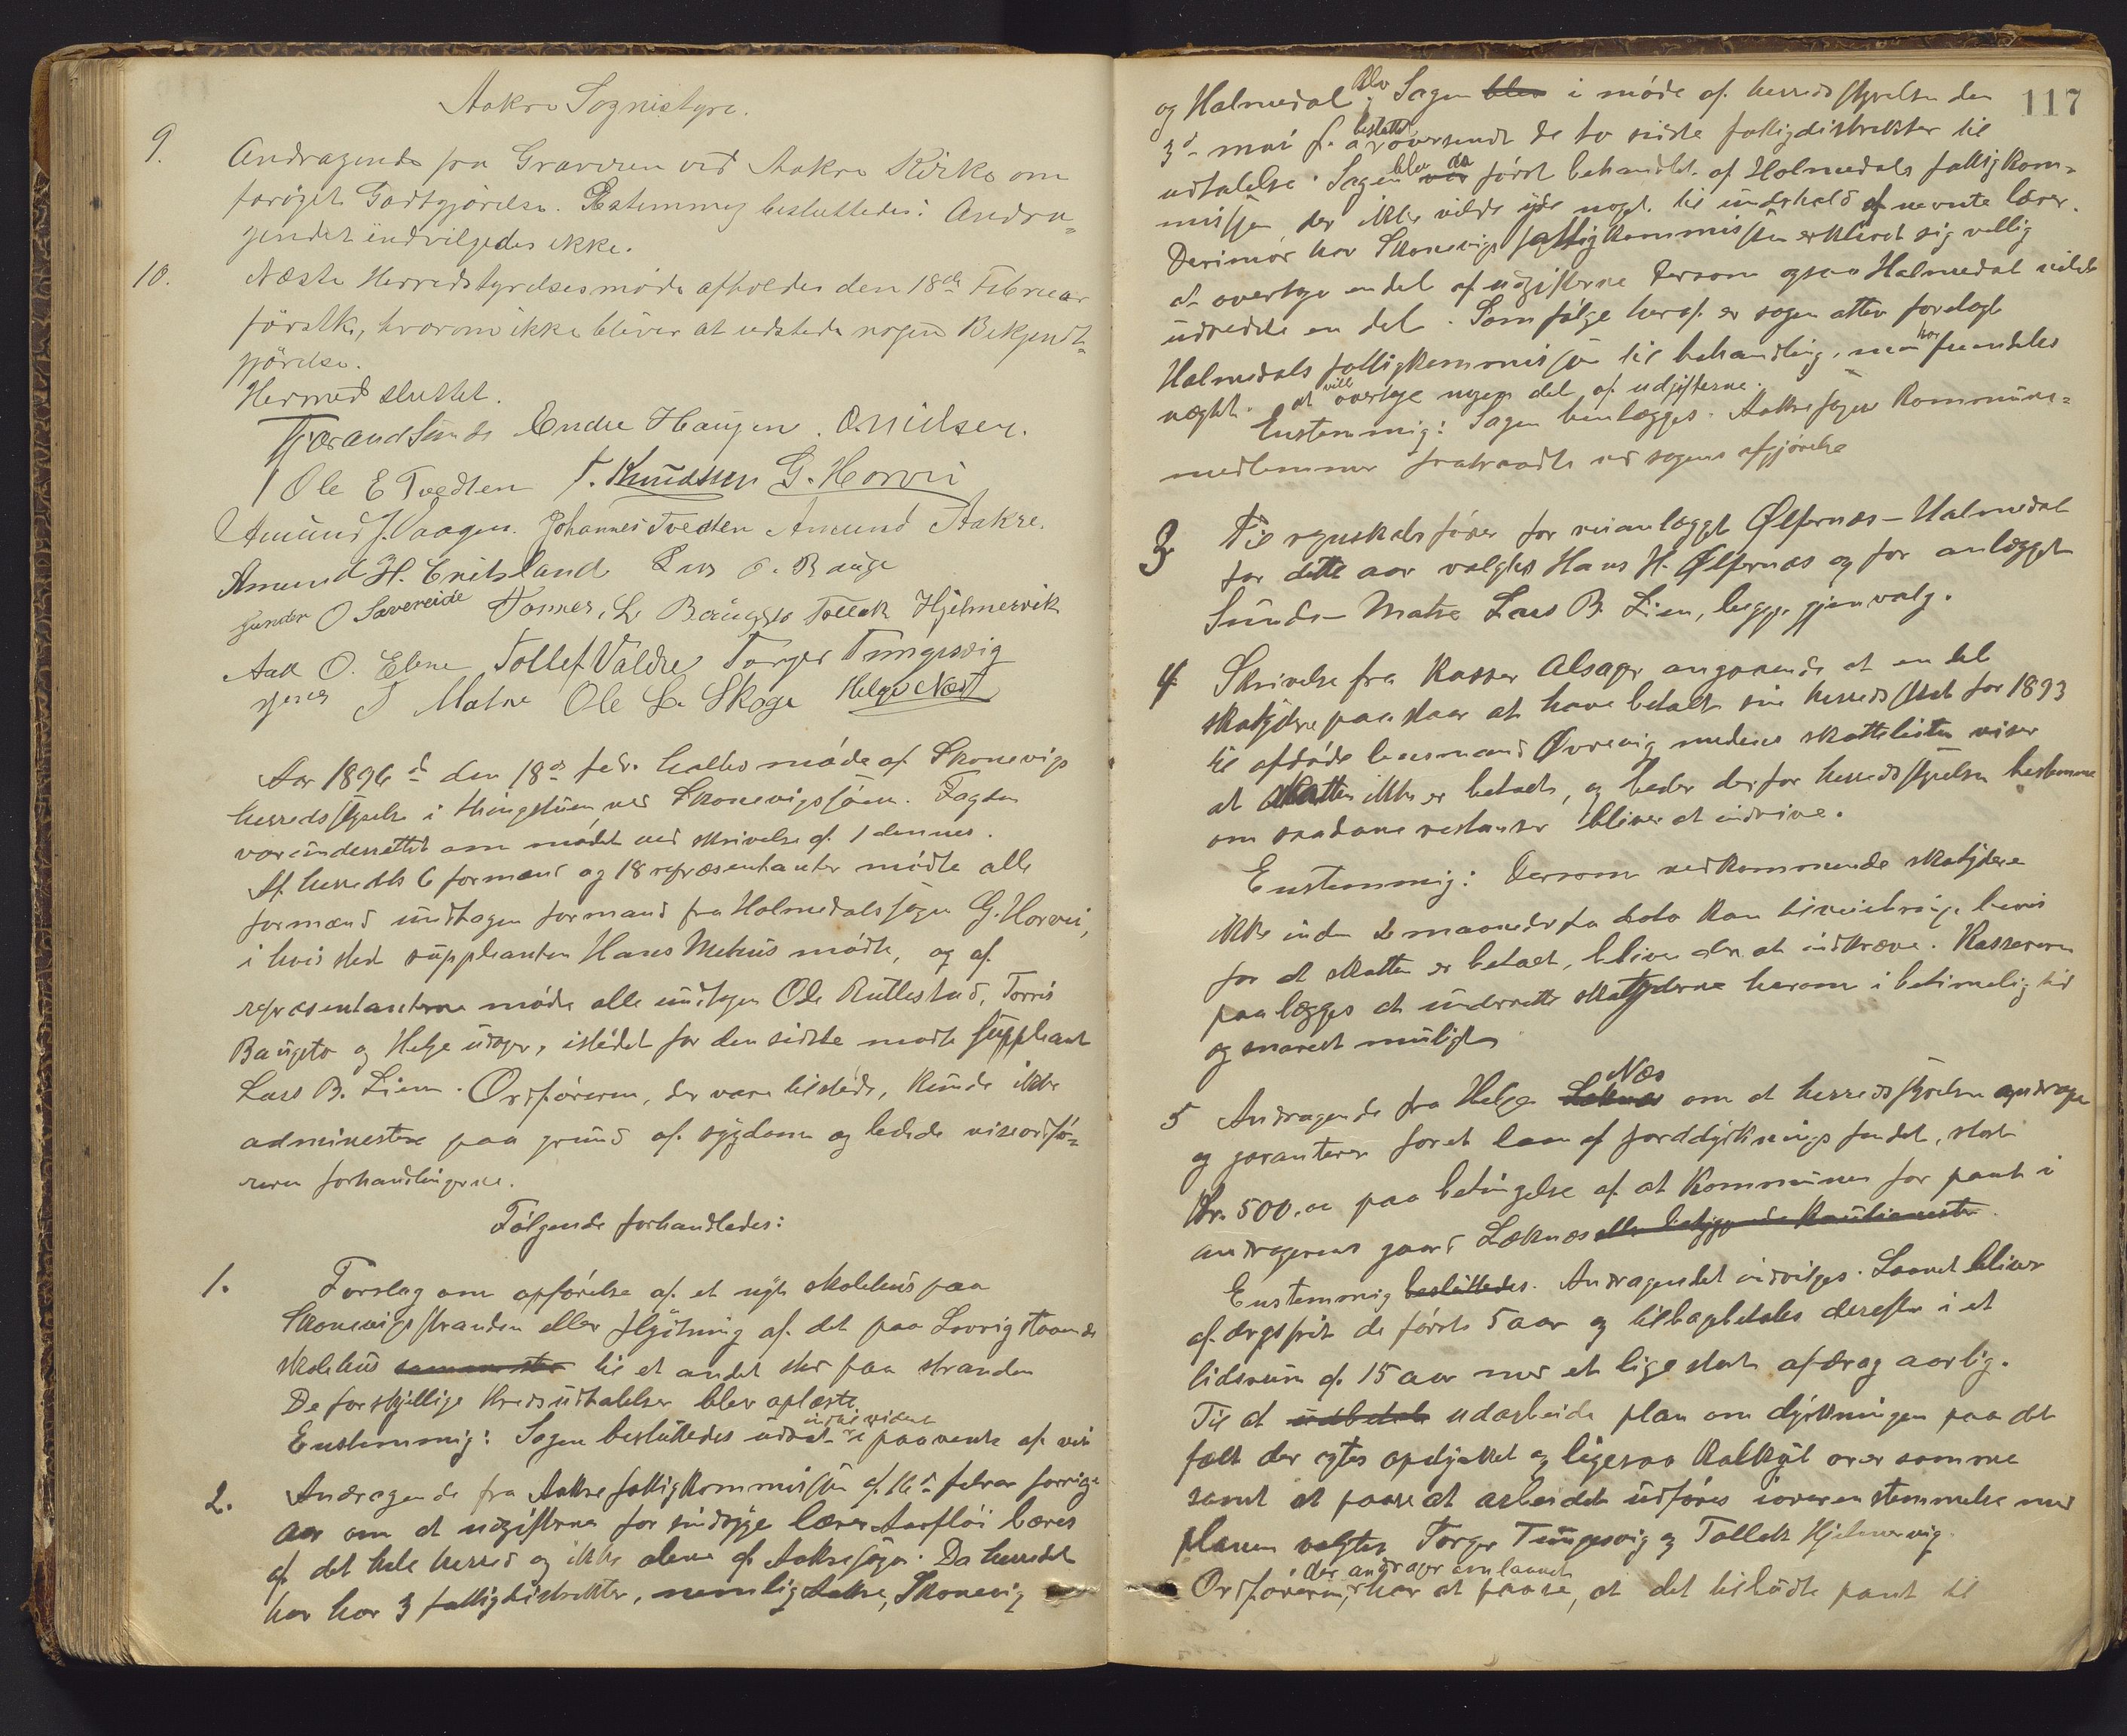 Aakre Sognestyre.
9. Andragende fra Graveren ved Aakre Kirke om
forøget Godtgjørelse. Estemmig besluttedes: Andra-
gendet indvilgedes ikke.
10. Næste Herredstyrelsesmøde afholdes den 18de Februar
førstk, hvorom ikke bliver at udstede nogen Bekjendt-
gjørelse.
Hermed sluttet.
Tjerand Sunde Endre Haugen. O. Nielsen.
Ole E Tvedten T. Knudssen G. Horvei
Amund J. Vaagen. Johannes Tvedten Amund Aakre.
Amund H. Eritsland Lars O. Bauge
Gunder O Sævereide Tørres L. Baugsto Tollak Hjelmervik
Aad O. Ebne Tollef Valdre Torger Tungesvig
S Matre Ole L. Skoge Helge Næs
Aar 1896 d den 18de feb. holtes møde af Skonevigs
herredsstyrelse i thingstuen ved Skonevigsjøen. Fogden
var underrettet om mødet ved skrivelse af 1 dennes.
Af herredets 6 formænd og 18 repræsentanter mødte alle
formænd undtagen formand fra Holmedals sogn G. Horvei,
i hvis sted suppleanten Hans Mehus mødte, og af
repræsentanterne mødte alle undtagen Ole Rullestad, Torris
Baugsto og Helge , istedet for den sidste mødte suppleant
Lars B. Lien. Ordføreren, der vare tilstede, kunde ikke
administere paa grund af sygdom og ledede viseordfø-
reren forhandlingerne.
Følgende forhandledes:
1. Forslag om opførelse af et nyt skolehus paa
Skonevigsstranden eller flytning af det paa Lovrig staaende
skolehus til et andet sted paa stranden
De forskjellige kredsudtalelser blev oplæste
Enstemmig: Sagen besluttedes udsat indtil videre paavente af
2. Andragende fra Aakre fattigkommission af 16de februar forrige
aar om at udgifterne for sindsyge lærer Aarfløi bæres
af det hele herred og ikke alene af Aakresogn. Da herredet
her har 3 fattigdistrikter, nemlig Aakre, Skonevig
117
og Holmedal blev Sagen blev i møde af herredsstyrelsen den
3de mai f. a. besluttet oversendt de to sidste fattigdistrikter til
udtalelse. Sagen blev da var først behandlet af Holmedals fattigkom-
mission, der ikke vilde yde noget til underhold af nevnte lærer.
Derimor har Skonevigs fattigkommission erklæret sig villig
at overtage en del af udgifterne dersom ogsaa Holmedal vilde
udrede en del. Som følge heraf er sagen atter forelagt
Holmedals fattigkommission til behandling, men har fremdeles
negtet at ville overtage nogen del af udgifterne.
Enstemmig: Sagen henlægges. Aakresogns kommune-
medlemmer fratraadte ved sagens afgjørelse
3 Til regnskabsfører for veianlægget Ølfernæs-Holmedal
for dette aar valgtes Hans H. Ølfernæs og for anlægget
Sunde-Matre Lars B. Lien, begge gjenvalg.
4 Skrivelse fra kasser Alsager angaaende at en del
skatydere paastaar at have betalt sin herredsskat for 1893
til afdøde lensmand Øvrevig medens skattelisten viser
at skatten ikke er betalt, og beder derfor herredsstyrelsen bestemme
om saadane restanser bliver at indrive.
Enstemmig: Dersom vedkommende skatydere
ikke inden 2 maaneder fra dato kan tilveiebringe bevis
for at skatten er betalt, bliver den at indkræve. Kasseren
paalægges at underrette skatyderne herom i betimelig tid
og snarest muligt
5 Andragende fra Helge Leknes Næs om at herredsstyrelsen andrage
og garanterer foret laan af jorddyrknings fondet, stort
Kr. 500,00 paa betingelse af at kommunen for pant i
andragerens gaard Læknes eller betryggende kautionister.
Enstemmig besluttedes. Andragendet indvilges. Laanet bliver
afdragsfrit de første 5 aar og tilbagebetales derefter i et
tidsrum af 15 aar med et lige stort afdrag aarlig.
Til at udbetale udarbeide plan om dyrkningen paa det
felt der agtes opdyrket og ligesaa kalkyl over samme
samt at paase at arbeidet udføres i overenstemmelse med
planen valgtes Torger Tungesvig og Tollak Hjelmervig.
Ordføreren, der andrager om laanet har at paase, at det tilbudte pant til